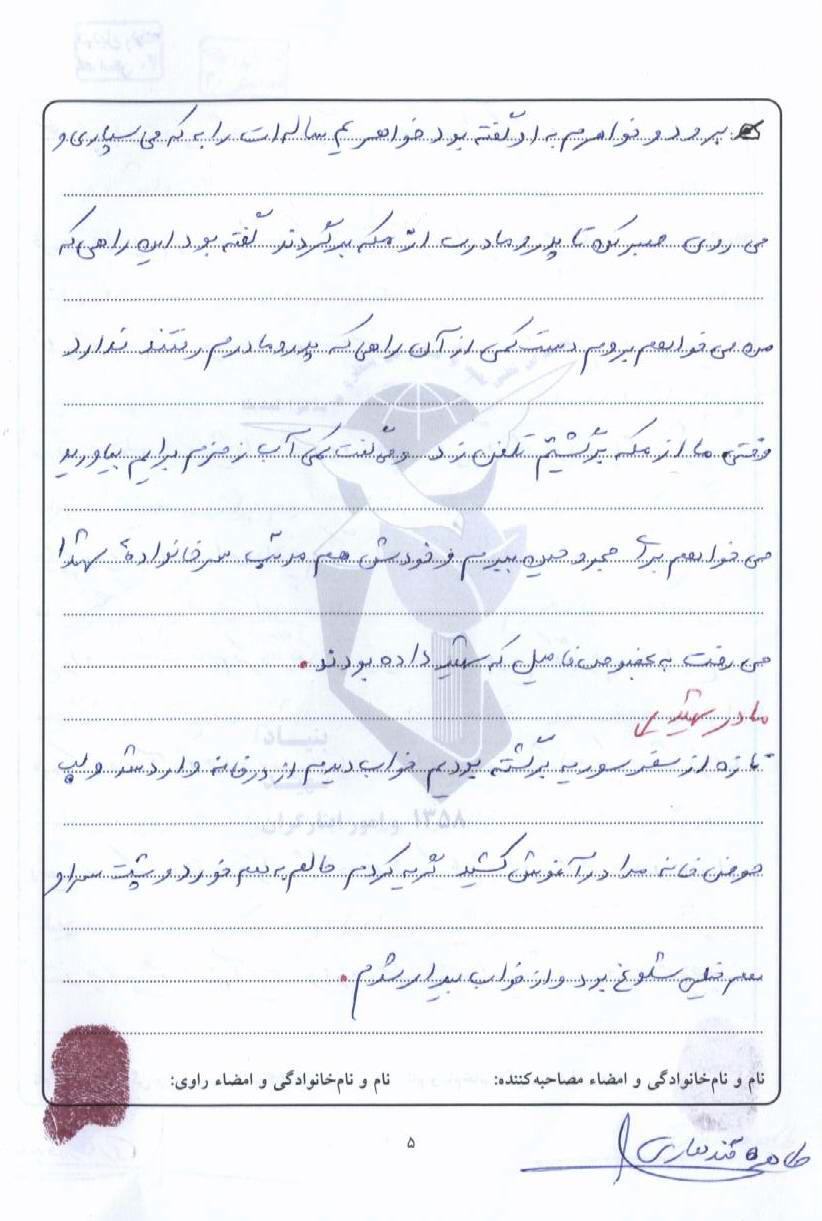 که برود و خواهرم به او گفته بود خواهر یتیم ساله‌ات را به که می سپاری و
می روی صبر کن تا پدر و مادرت از مکه برگردند گفته بود این راهی که
من می خواهم بروم دست کمی از آن راهی که پدر و مادرم رفتند ندارد
وقتی ما از مکه برگشتیم تلفن زد و می گفت کمی آب زمزم برایم بیاورید
می خواهم برای مجروحین ببرم و خودش هم مرتب سر خانوادهٔ شهدا
می رفت به خصوص فامیل که شهید داده بودند.
مادر شهید
تازه از سفر سوریه برگشته بودیم خواب دیدم از در خانه وارد شد و لب
حوض خانه مرا در آغوش کشید گریه کردم حالم به هم خورد و پشت سر او
هم خیلی شلوغ بود و از خواب بیدار شدم.
بنیاد
۱۳۵۸ و امور ایثارگران
نام و نام‌خانوادگی و امضاء مصاحبه‌کننده: نام و نام‌خانوادگی و امضاء راوی:
۵
طاهره قندهاری